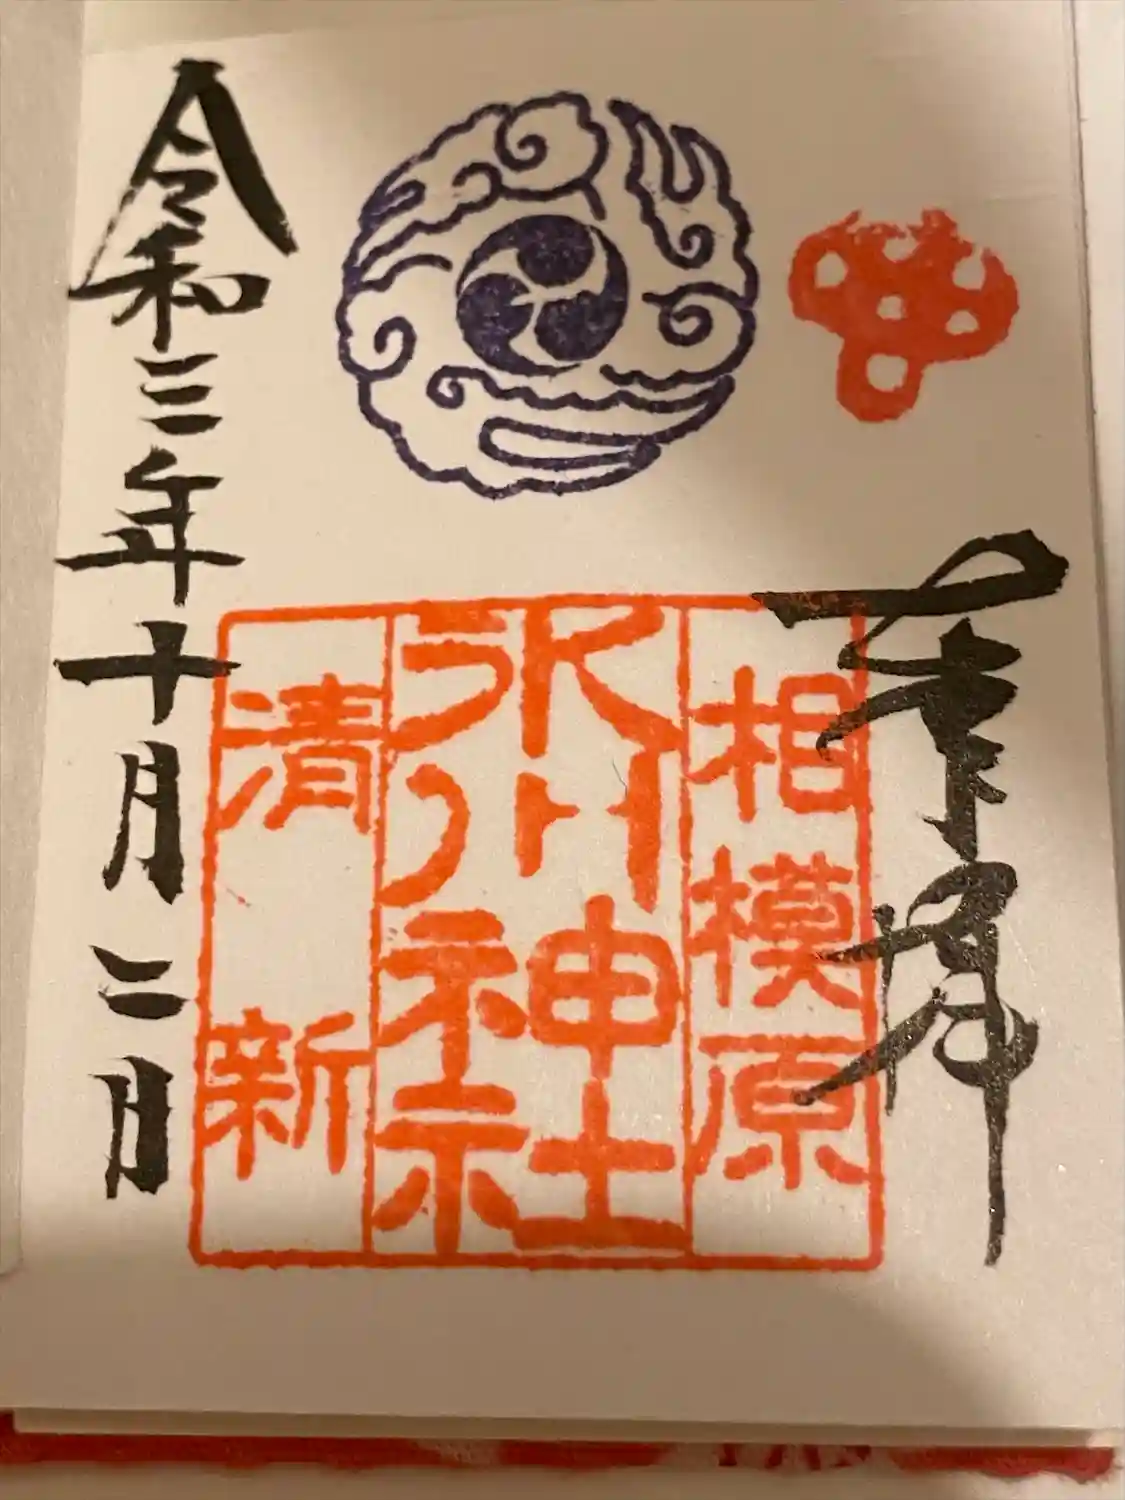 奉拝
相模原
氷川神社
清新
令和三年十月二日